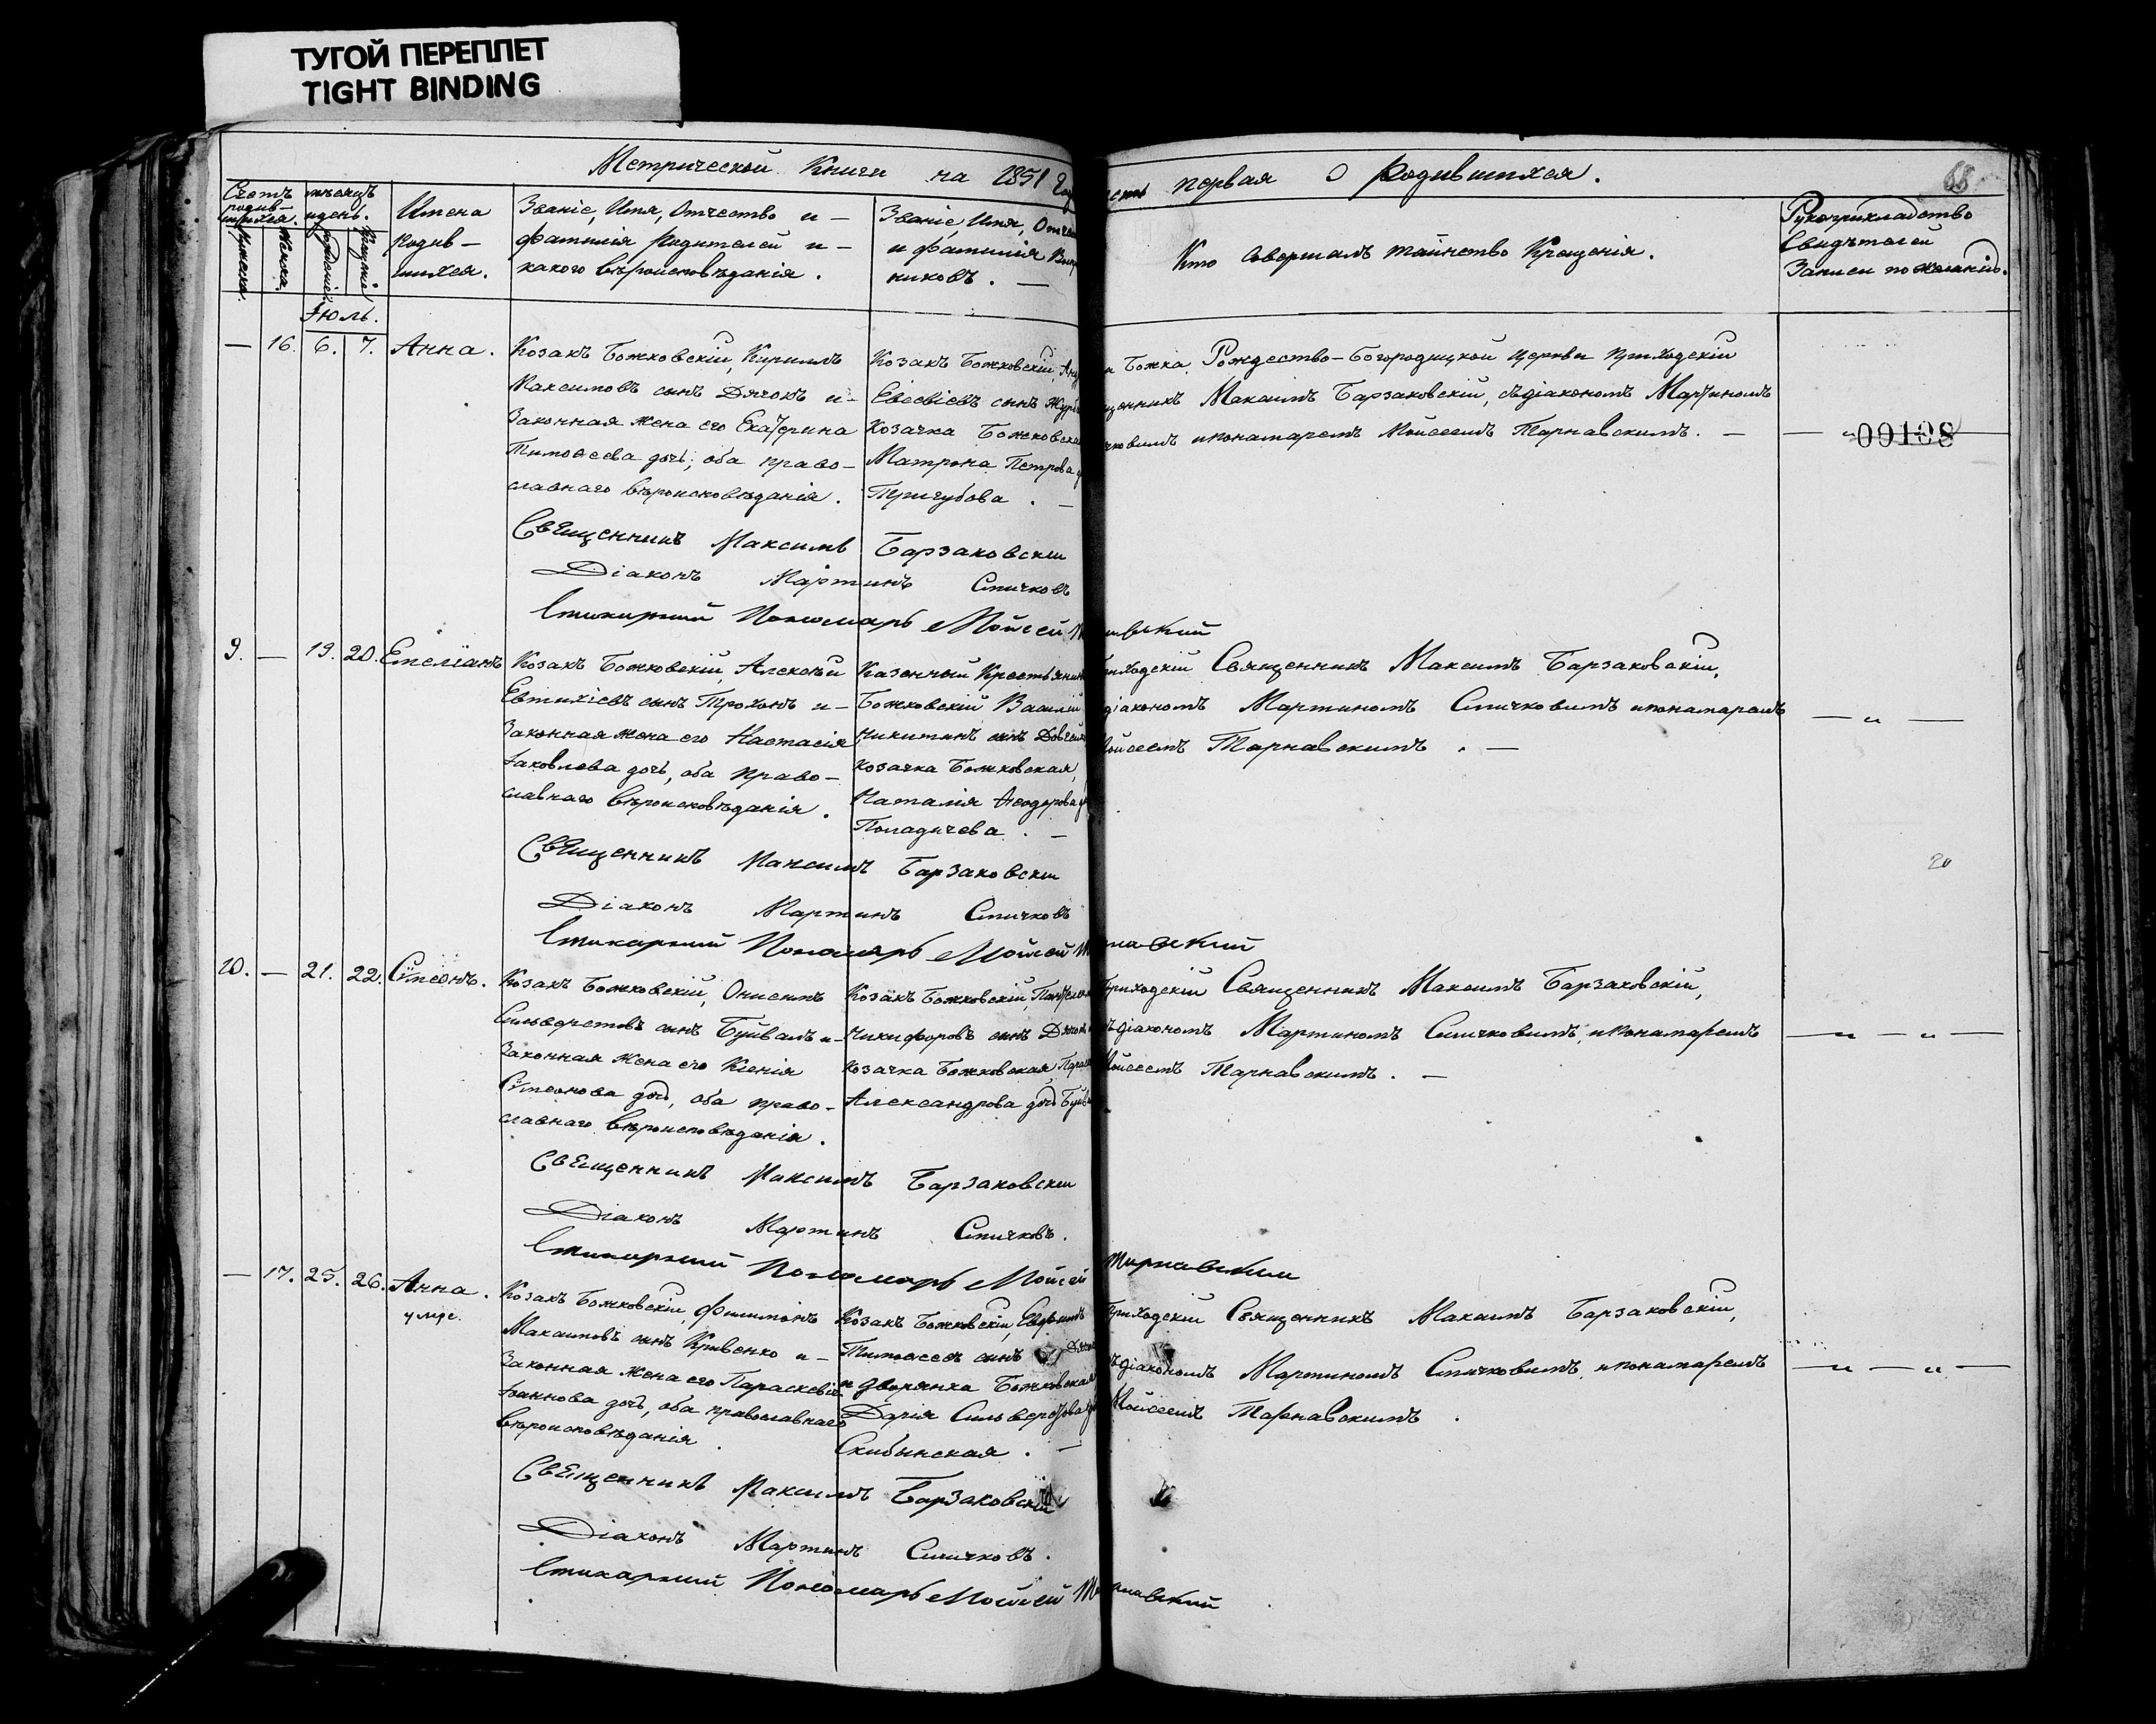 ТУГОЙ ПЕРЕПЛЕТ
TIGHT BINDING
Метрической Книги на 1851
первая о родившихся.
68
Счетъ родив-шихся.
мѣсяцъ и день.
Имена
родив-
шихся.
Званіе, Имя, Отчество и-
фамилія родителей и-
какого вѣроисповѣданія.
Званіе, Имя,
и фамилія
никовъ. —
Кто совершалъ таинство Крещенія.
Рукоприкладство
Свидѣтелей
Записи по желанію.
Іюль.
— 16. 6. 7. Анна.
Козакъ Божковскій, Кириллъ
Максимовъ сынъ Дячокъ и-
Законная жена его Екатерина
Тимоѳеева дочь; оба право-
славнаго вѣроисповѣданія.
Козакъ Божковскій,
Евсевіевъ сынъ
Козачка
Матрона Петрова
Пригубова. —
Божка, Рождество-Богородицкой церкви приходскій
Максимъ Барзаковскій, съ діакономъ Мартиномъ
и понамаремъ Моисеемъ Тарнавскимъ. —
00108
Священникъ Максимъ Барзаковскій
Діаконъ Мартинъ Спичковъ
Стихарный Пономарь Мойсей
9. — 19. 20. Емеліанъ
Козакъ Божковскій, Алексѣй
Евтихіевъ сынъ Трохонъ и-
Законная жена его Настасія
Іаковлева дочь, оба право-
славнаго вѣроисповѣданія.
Казенный Крестьянинъ
Божковскій Василій
Никитинъ сынъ
козачка Божковская,
Наталія Ѳеодорова
Поладичева. —
Священникъ Максимъ Барзаковскій,
діакономъ Мартиномъ Спичковимъ и понамаремъ
Тарнавскимъ. —
— „ —
20
Священникъ Максимъ Барзаковскій
Діаконъ Мартинъ Спичковъ
Стихарный Пономарь Мойсей
10. — 21. 22. Сѵмеонъ.
Козакъ Божковскій, Онисимъ
Сильвестровъ сынъ Буйвалъ и-
Законная жена его Ксенія
Сѵмеонова дочь, оба право-
славнаго вѣроисповѣданія.
Козакъ Божковскій,
Никифоровъ сынъ
козачка Божковская
Александрова дочь
Приходскій Священникъ Максимъ Барзаковскій,
діакономъ Мартиномъ Спичковимъ, и понамаремъ
Мойсеемъ Тарнавскимъ. —
— „ — „ —
Священникъ Максимъ Барзаковскій
Діаконъ Мартинъ Спичковъ.
Стихарный Пономарь Мойсей Тарнавский
— 17. 25. 26. Анна.
умре.
Козакъ Божковскій, Филимонъ
Максимовъ сынъ Кривенко и-
Законная жена его Параскевія
Іоаннова дочь, оба православнаго
вѣроисповѣданія.
Козакъ Божковскій, Евфимъ
Тимоѳеевъ сынъ
и дворянка Божковская
Дарія Сильвестрова
Скибинская. —
Приходскій Священникъ Максимъ Барзаковскій,
діакономъ Мартиномъ Спичковимъ, и понамаремъ
Мойсеемъ Тарнавскимъ.
— „ — „ —
Священникъ Максимъ Барзаковскій
Діаконъ Мартинъ Спичковъ.
Стихарный Пономарь Мойсей